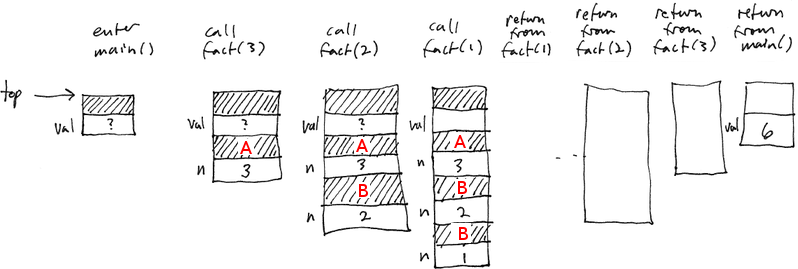 enter
main()
call
fact(3)
call
fact(2)
call
fact(1)
return
from
fact(1)
return
from
fact(2)
return
from
fact(3)
return
from
main()
top
val ?
val ?
A
n 3
val ?
A
n 3
B
n 2
val
A
n 3
B
n 2
B
n 1
...
val 6